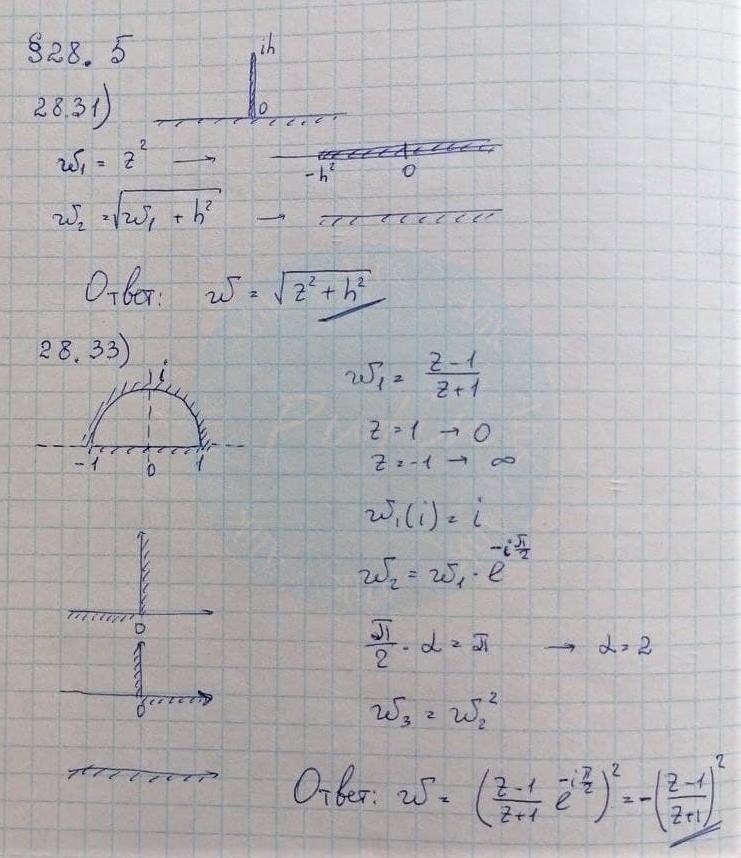 §28. 5
ih
28.31)
0
w₁ = z² →
-h² 0
w₂ = √(w₁ + h²) →
Ответ: w = √(z² + h²)
28.33)
i
-1 0 1
w₁ = (z-1)/(z+1)
z=1 → 0
z=-1 → ∞
w₁(i) = i
0
w₂ = w₁ · e^(-iπ/2)
π/2 · α = π → α=2
0
w₃ = w₂²
Ответ: w = ((z-1)/(z+1) e^(-iπ/2))² = -((z-1)/(z+1))²